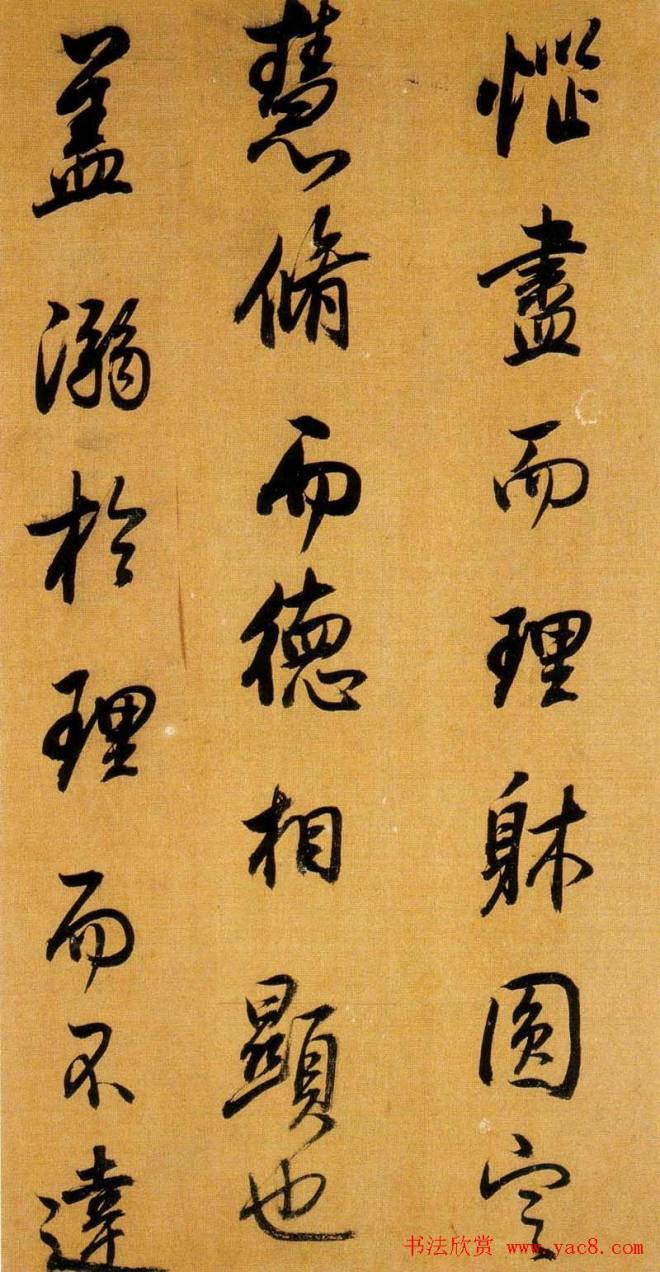 惱盡而理躰圓定
慧脩而德相顯也
蓋溺於理而不達
书法欣赏 www.yac8.com